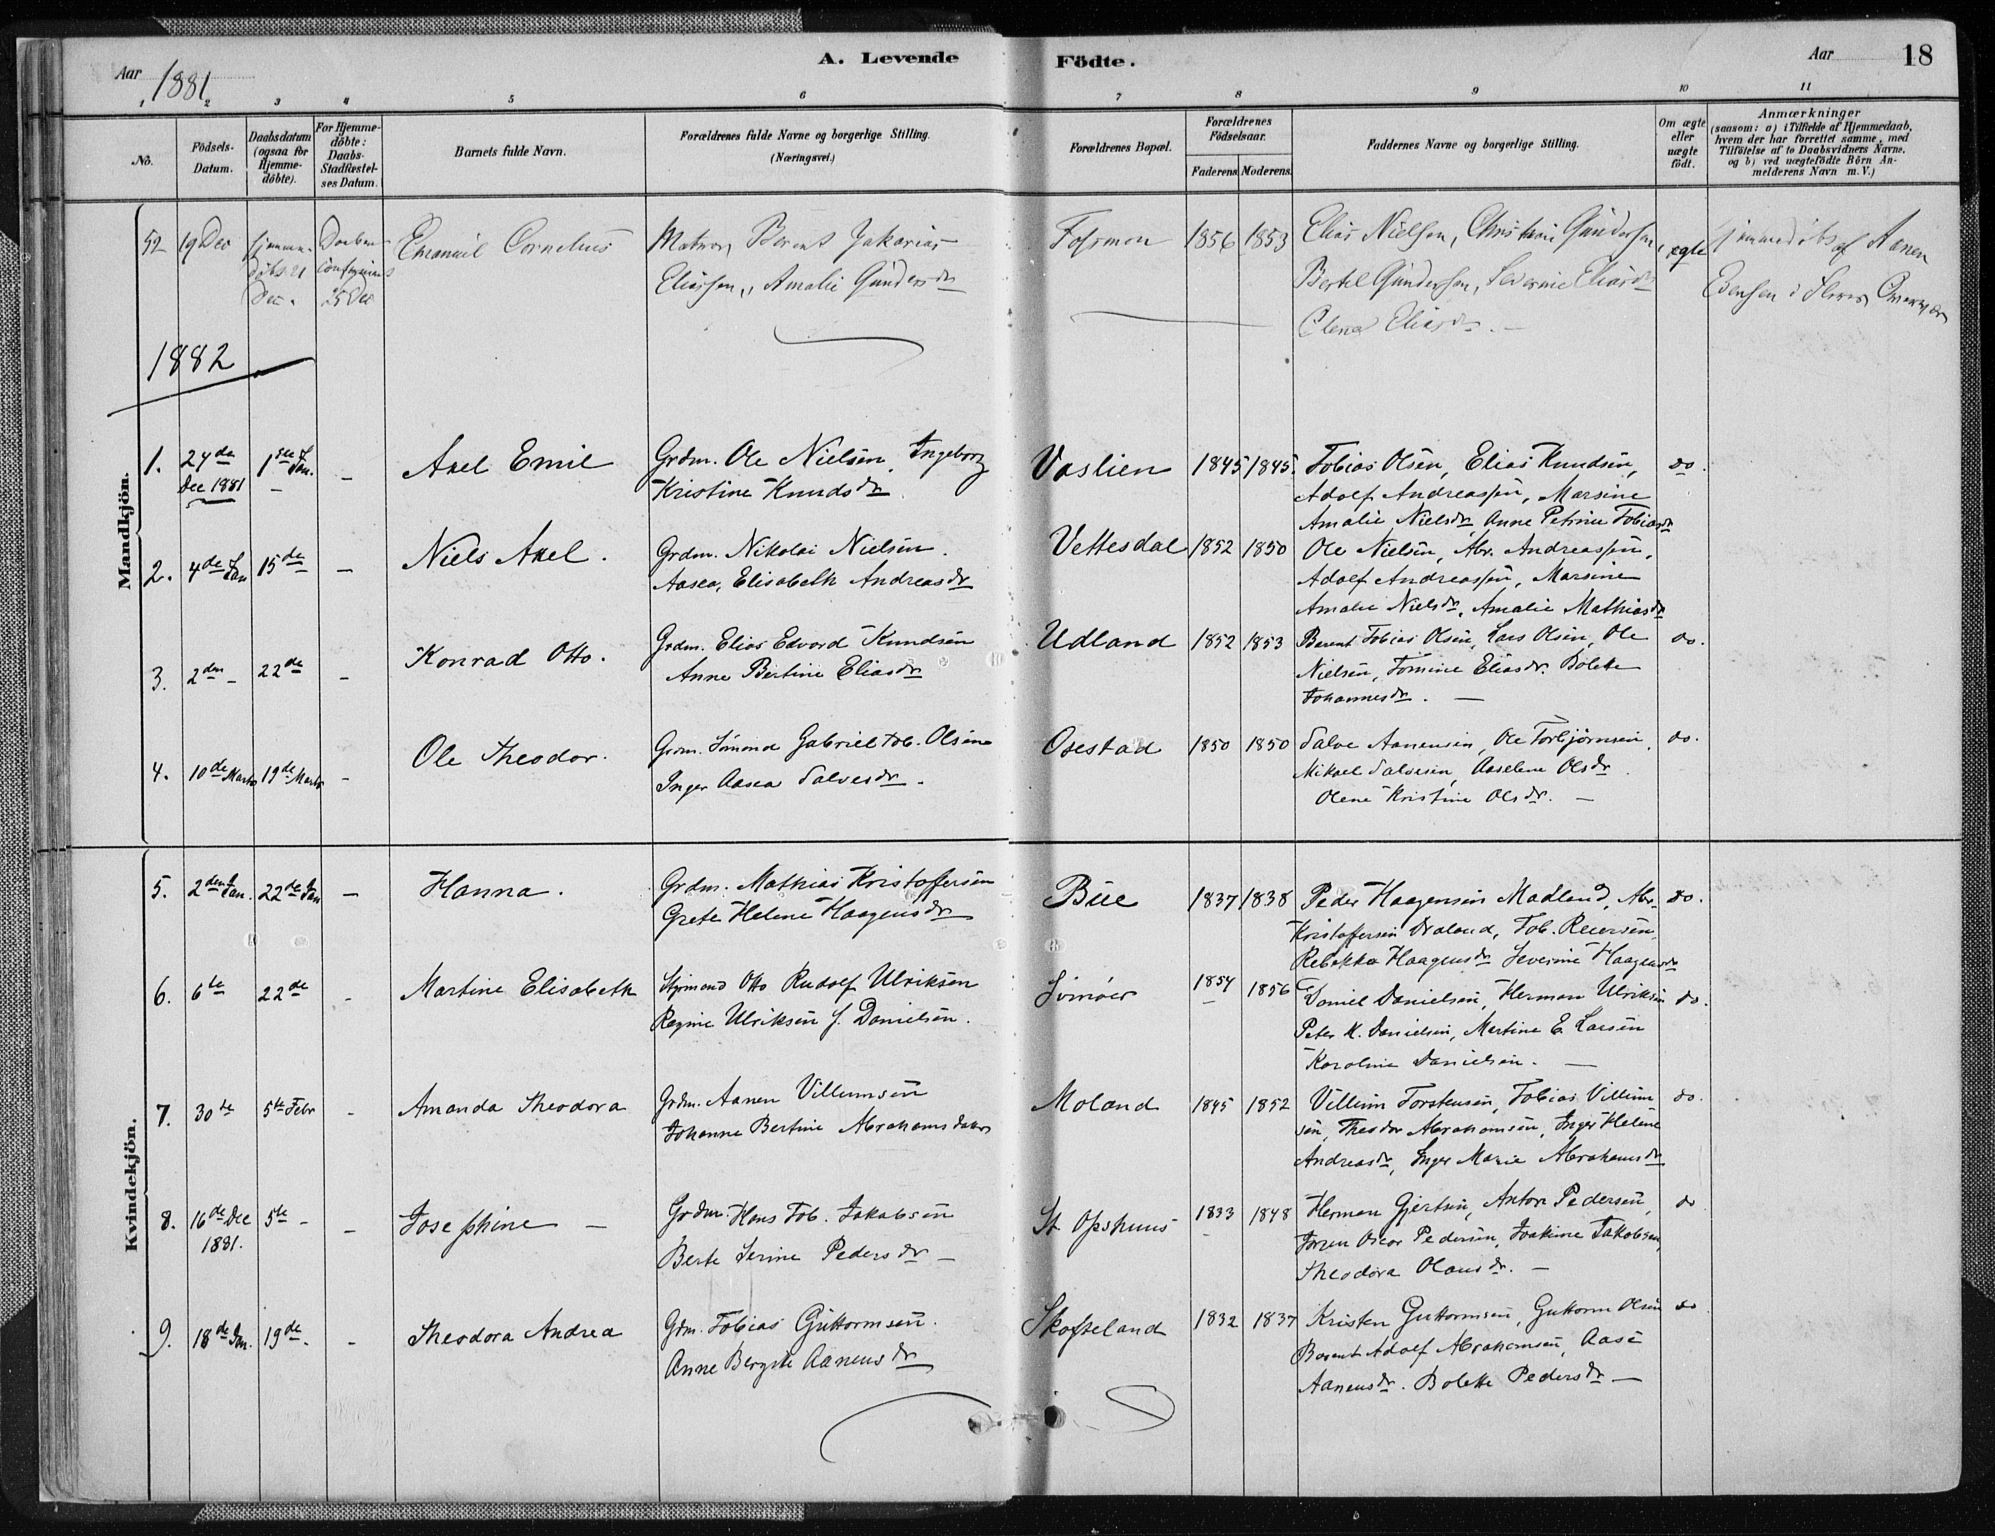 Aar 1881
A. Levende Födte.
Aar
18
1 2 3 4 5 6 7 8 9 10 11
No.
Födsels-Datum.
Daabsdatum (ogsaa for Hjemmedöbte).
For Hjemmedöbte: Daabs-Stadfæstelses Datum.
Barnets fulde Navn.
Forældrenes fulde Navne og borgerlige Stilling. (Næringsvei.)
Forældrenes Bopæl.
Forældrenes Födselsaar.
Faderens Moderens
Faddernes Navne og borgerlige Stilling.
Om ægte eller uægte födt.
Anmærkninger
(saasom: a) i Tilfælde af Hjemmedaab,
hvem der har forrettet samme, med
Tilföielse af to Daabsvidners Navne,
og b) ved uægtefödte Börn Anmelderens Navn m. V.)
52 19 Dec 21 Dec. 25 Dec Emanuil Cornelius
Matros Berent Zakarias
Eliassen, Amalie Gundersdr
Fossmon 1856 1853
Elias Nielsen, Christian Gundersen,
Bertel Gundersen, Severine Eliasdr
Elena Eliasdr. —
ægte
af Aanen
1882
Mandkjön.
1. 24de Dec 1881 1ste Jan. — Axel Emil
Grdm. Ole Nielsen, Ingeborg
Kristine Knudsdr
Vaslien 1845 1845.
Tobias Olsen, Elias Knudsen,
Adolf Andreassen, Marsine
Amalie Nielsdr, Anne Petrine Tobiasdr
do.
2. 4de Jan 15de — Niels Axel.
Grdm. Nikolai Nielsen.
Aasea, Elisabeth Andreasdr
Vettesdal 1852 1850
Ole Nielsen, Abr. Andreassen,
Adolf Andreassen, Marsine
Amalie Nielsdr. Amalie Mathiasdr
3. 2den — 22de — Konrad Otto.
Grdm. Elias Edvard Knudsen
Anne Bertine Eliasdr
Udland 1852 1853
Berent Tobias Olsen, Lars Olsen, Ole
Nielsen, Tomine Eliasdr. Bolette
Johannesdr. —
do.
4. 10de Marts 19de Marts — Ole Theodor.
Grdm. Simond Gabriel Tob. Olsen
Inger Aasea Salvesdr.
Osestad 1850 1850
Salve Aanensen, Ole Torbjörnsen,
Mikael Salvesen, Aaselene Olsdr.
Olene Kristine Olsdr. —
do.
Kvindekjön.
5. 2den Jan. 22de Jan — Hanna.
Grdm. Mathias Kristoffersen
Grete Helene Haagensdr
Büe 1837 1838
Peder Haagensen Madland, Abr.
Kristoffersen, Tob. Reiersen,
Rebekka Haagensdr Severine Haagensdr
do.
6. 6te 22de — Martine Elisabeth
Styrmand Otto Rudolf Ulriksen
Regine Ulriksen f. Danielsen.
Svinöer 1854 1856
Daniel Danielsen, Herman Ulriksen
Peter M. Danielsen, Martine E. Larsen
Karoline Danielsen. —
do.
7. 30te 5te Febr — Amanda Theodora
Grdm. Aanen Villumsen
Johanne Bertine Abrahamsdatter
Moland 1845 1852
Villum Torstensen, Tobias Villum
sen, Theodor Abrahamsen, Inger Helene
Andreasdr, Inger Marie Abrahamsdr
do.
8. 16de Dec 1881. 5te — — Josephine —
Grdm. Hans Tob. Jakobsen
Berte Serine Pedersdr —
St. Opshuus 1833 1848
Herman Gjertsen, Anton Pedersen,
Jörgen Oscar Pedersen, Joakime Jakobsen,
Theodora Olausdr. —
do
9. 18de Jan. 19de — — Theodora Andrea
Grdm. Tobias Guttormsen.
Anne Bergite Aanensdr
Skofteland 1832 1837
Kristen Guttormsen, Guttorm Olsen
Berent Adolf Abrahamsen, Aase
Aanensdr. Bolette Pedersdr —
do